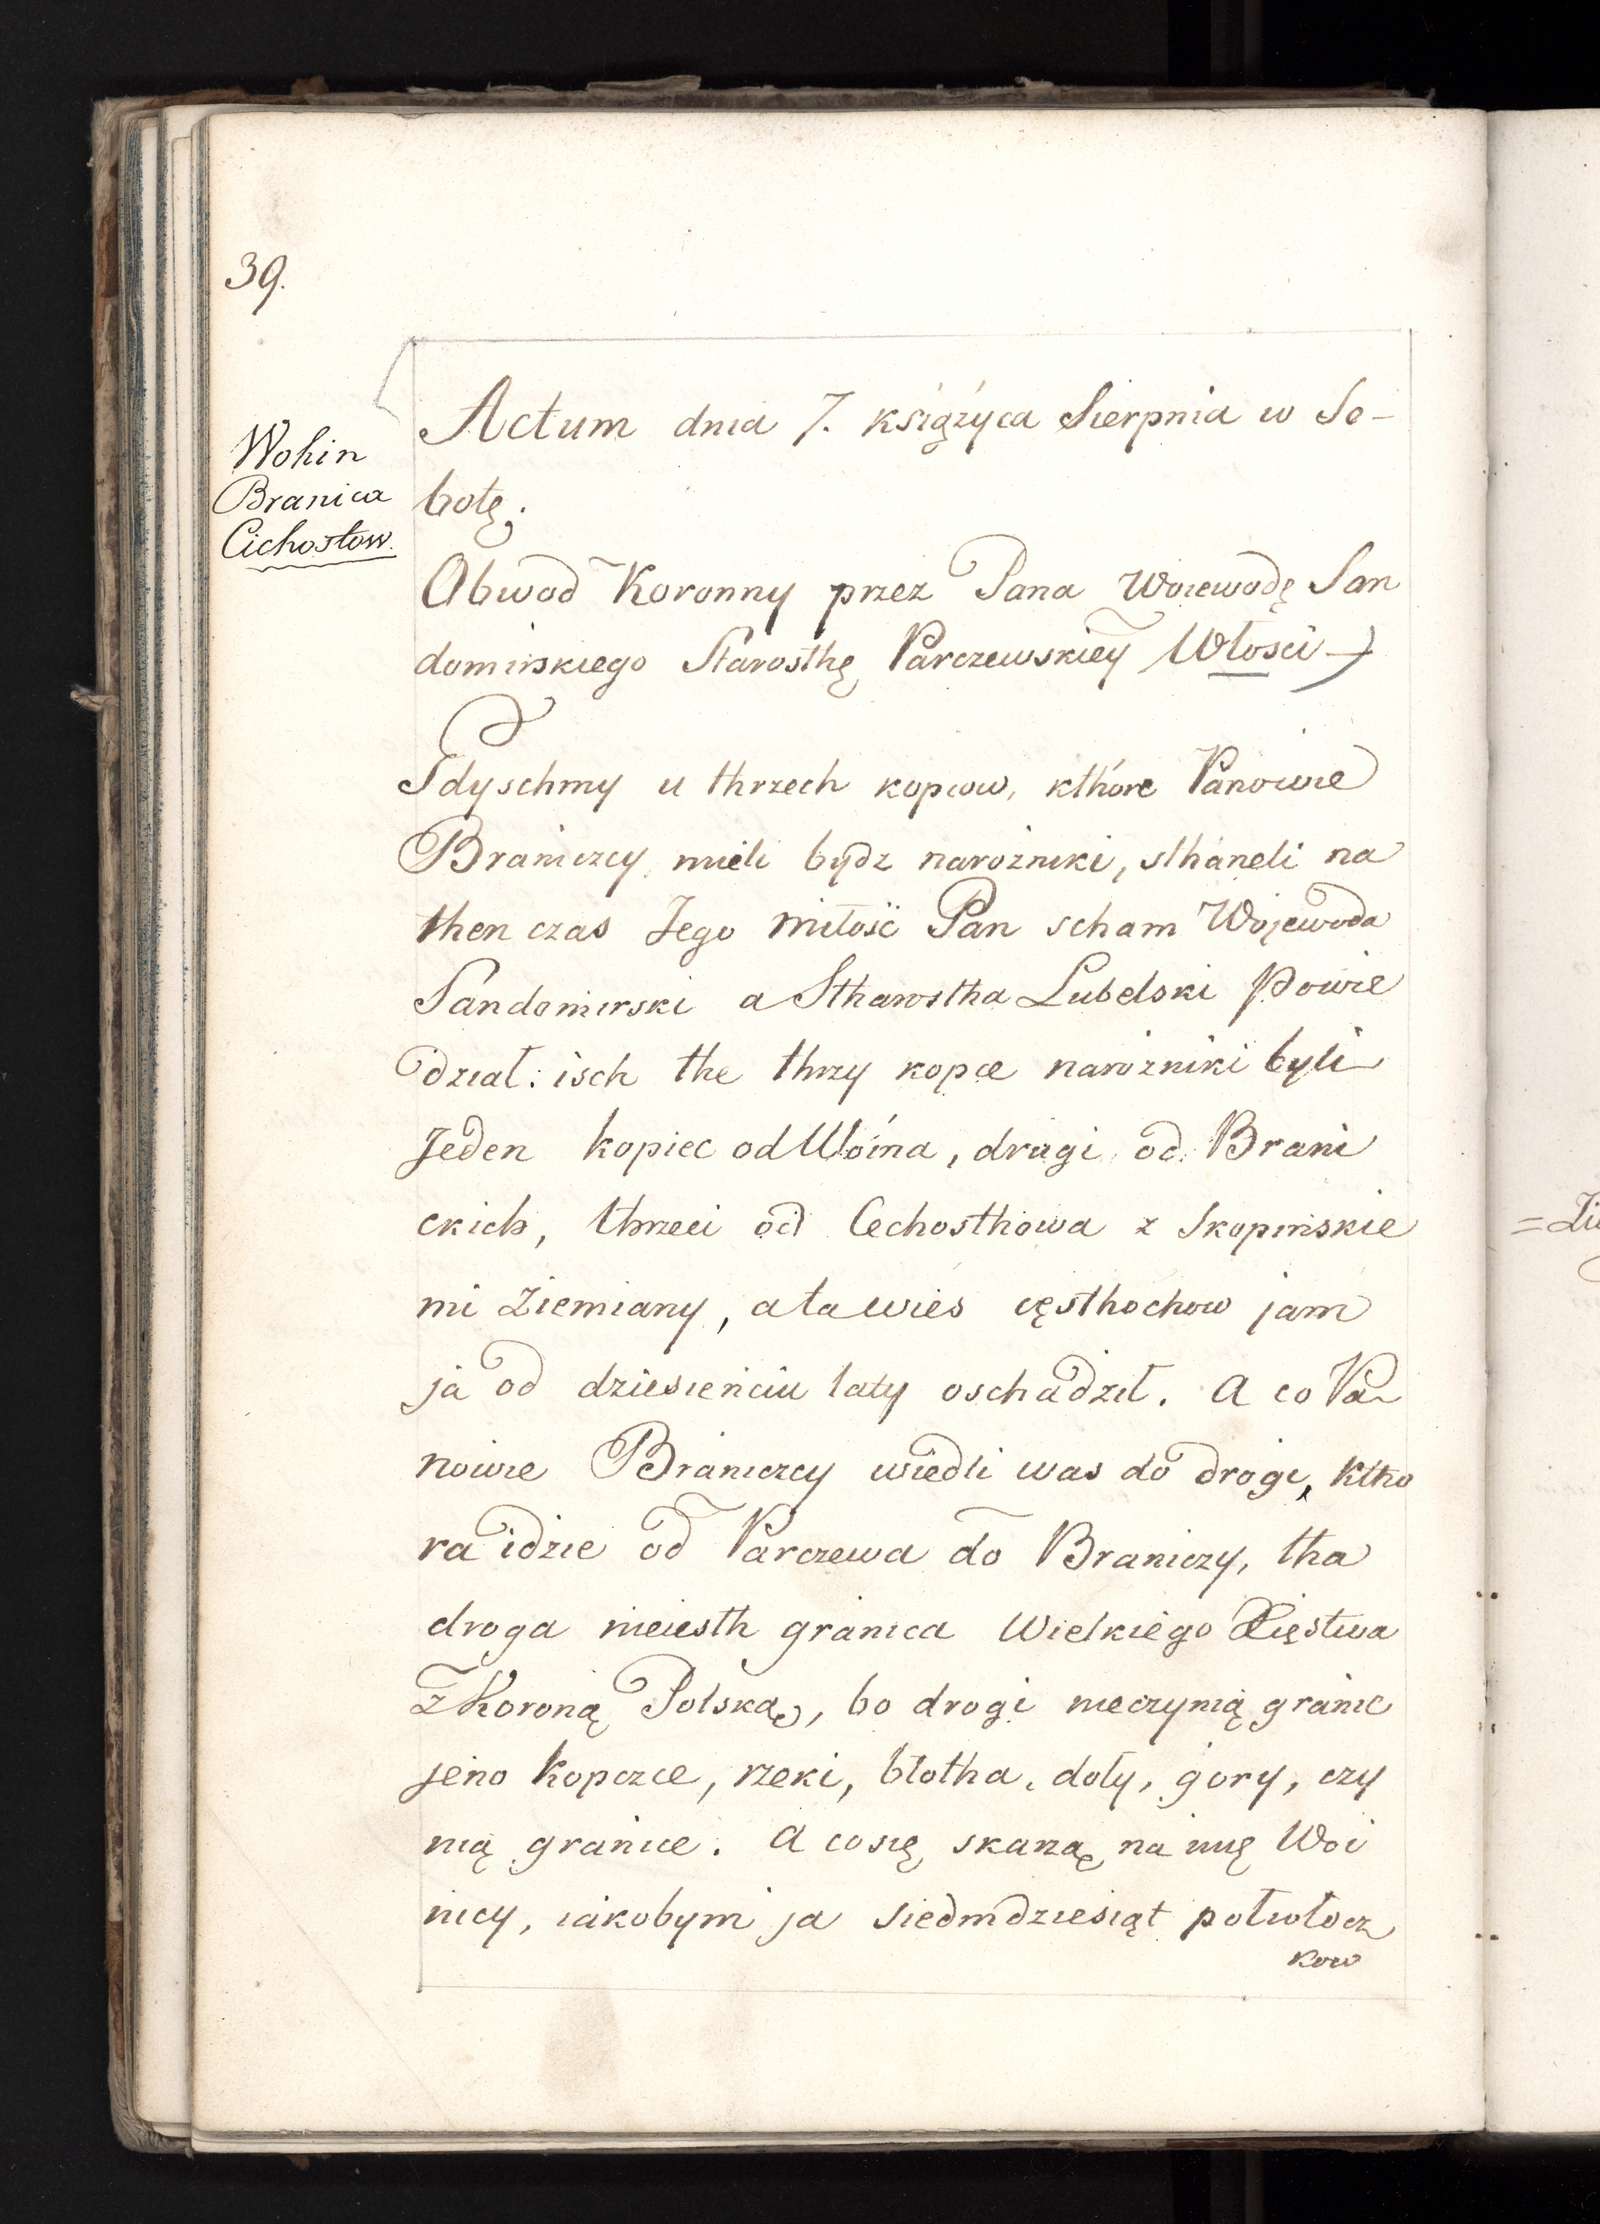 39.
Wohin
Branica
Cichostow.
Actum dnia 7. księżyca Sierpnia w So-
botę.
Obwod Koronny przez Pana Woiewodę San
domirskiego Starosthę Parczewskiey Włosci
Gdyschmy u thrzech kopcow, kthóre Panowie
Braniczcy mieli bydz narożniki, sthaneli na
then czas Jego miłość Pan scham Wojewoda
Sandomirski a Stharostha Lubelski powie
dział: isch the thrzy kopce narożniki byli
Jeden kopiec od Woina, drugi od Brani
ckich, thrzeci od Cechosthowa z Skopinskie
mi Ziemiany, a ta wies cęsthochow jam
ja od dziesieńciu laty oschadził. A co Pa
nowie Braniczcy wiedli was do drogi, ktho
ra idzie od Parczewa do Braniczy, tha
droga nieiesth granica Wielkiego Xięstwa
z Koroną Polską, bo drogi nieczynią granic
jeno kopcze, rzeki, błotha, doły, gory, czy
nią granice. A cosię skarzą na mię Woi
nicy, iakobym ja siedmdziesiąt połwłocz
kow
=Zi